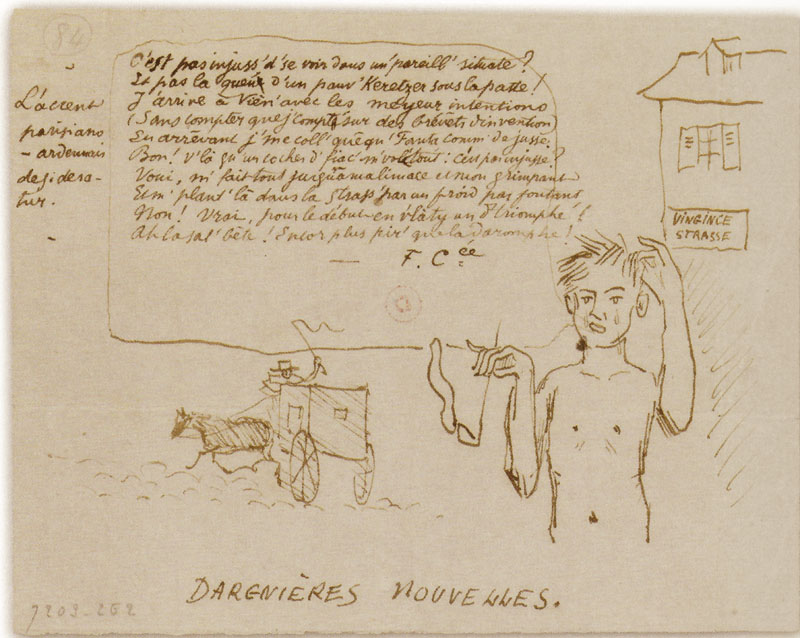 84
L'accent
parisiano
- ardennais
desidera-
tur.
C'est pas injuss' d'se voir dans un' pareill' situate?
Et pas la queue d'un pauv' Keretzer sous la patte!
J'arrive à Vien' avec les meyeur intentions
(Sans compter que j'compt' sur des brevets d'invention)
En arrêvant j'me coll' quéqu' Fanta comm' de jusse.
Bon! v'là qu'un cocher d'fiac' m'vol' tout: c'est pas injusse?
Voui, m'fait tout jusqu'à ma limace et mon grimpant
Et m'plant' là dans la Strass' par un froid pas foutant
Non! Vrai, pour le début en v'là ty un d'triomphe!
Ah la sal' bête! Encor plus pir' que la daromphe!
F. Cée
VINGINCE
STRASSE
DARGNIÈRES NOUVELLES.
7203-262